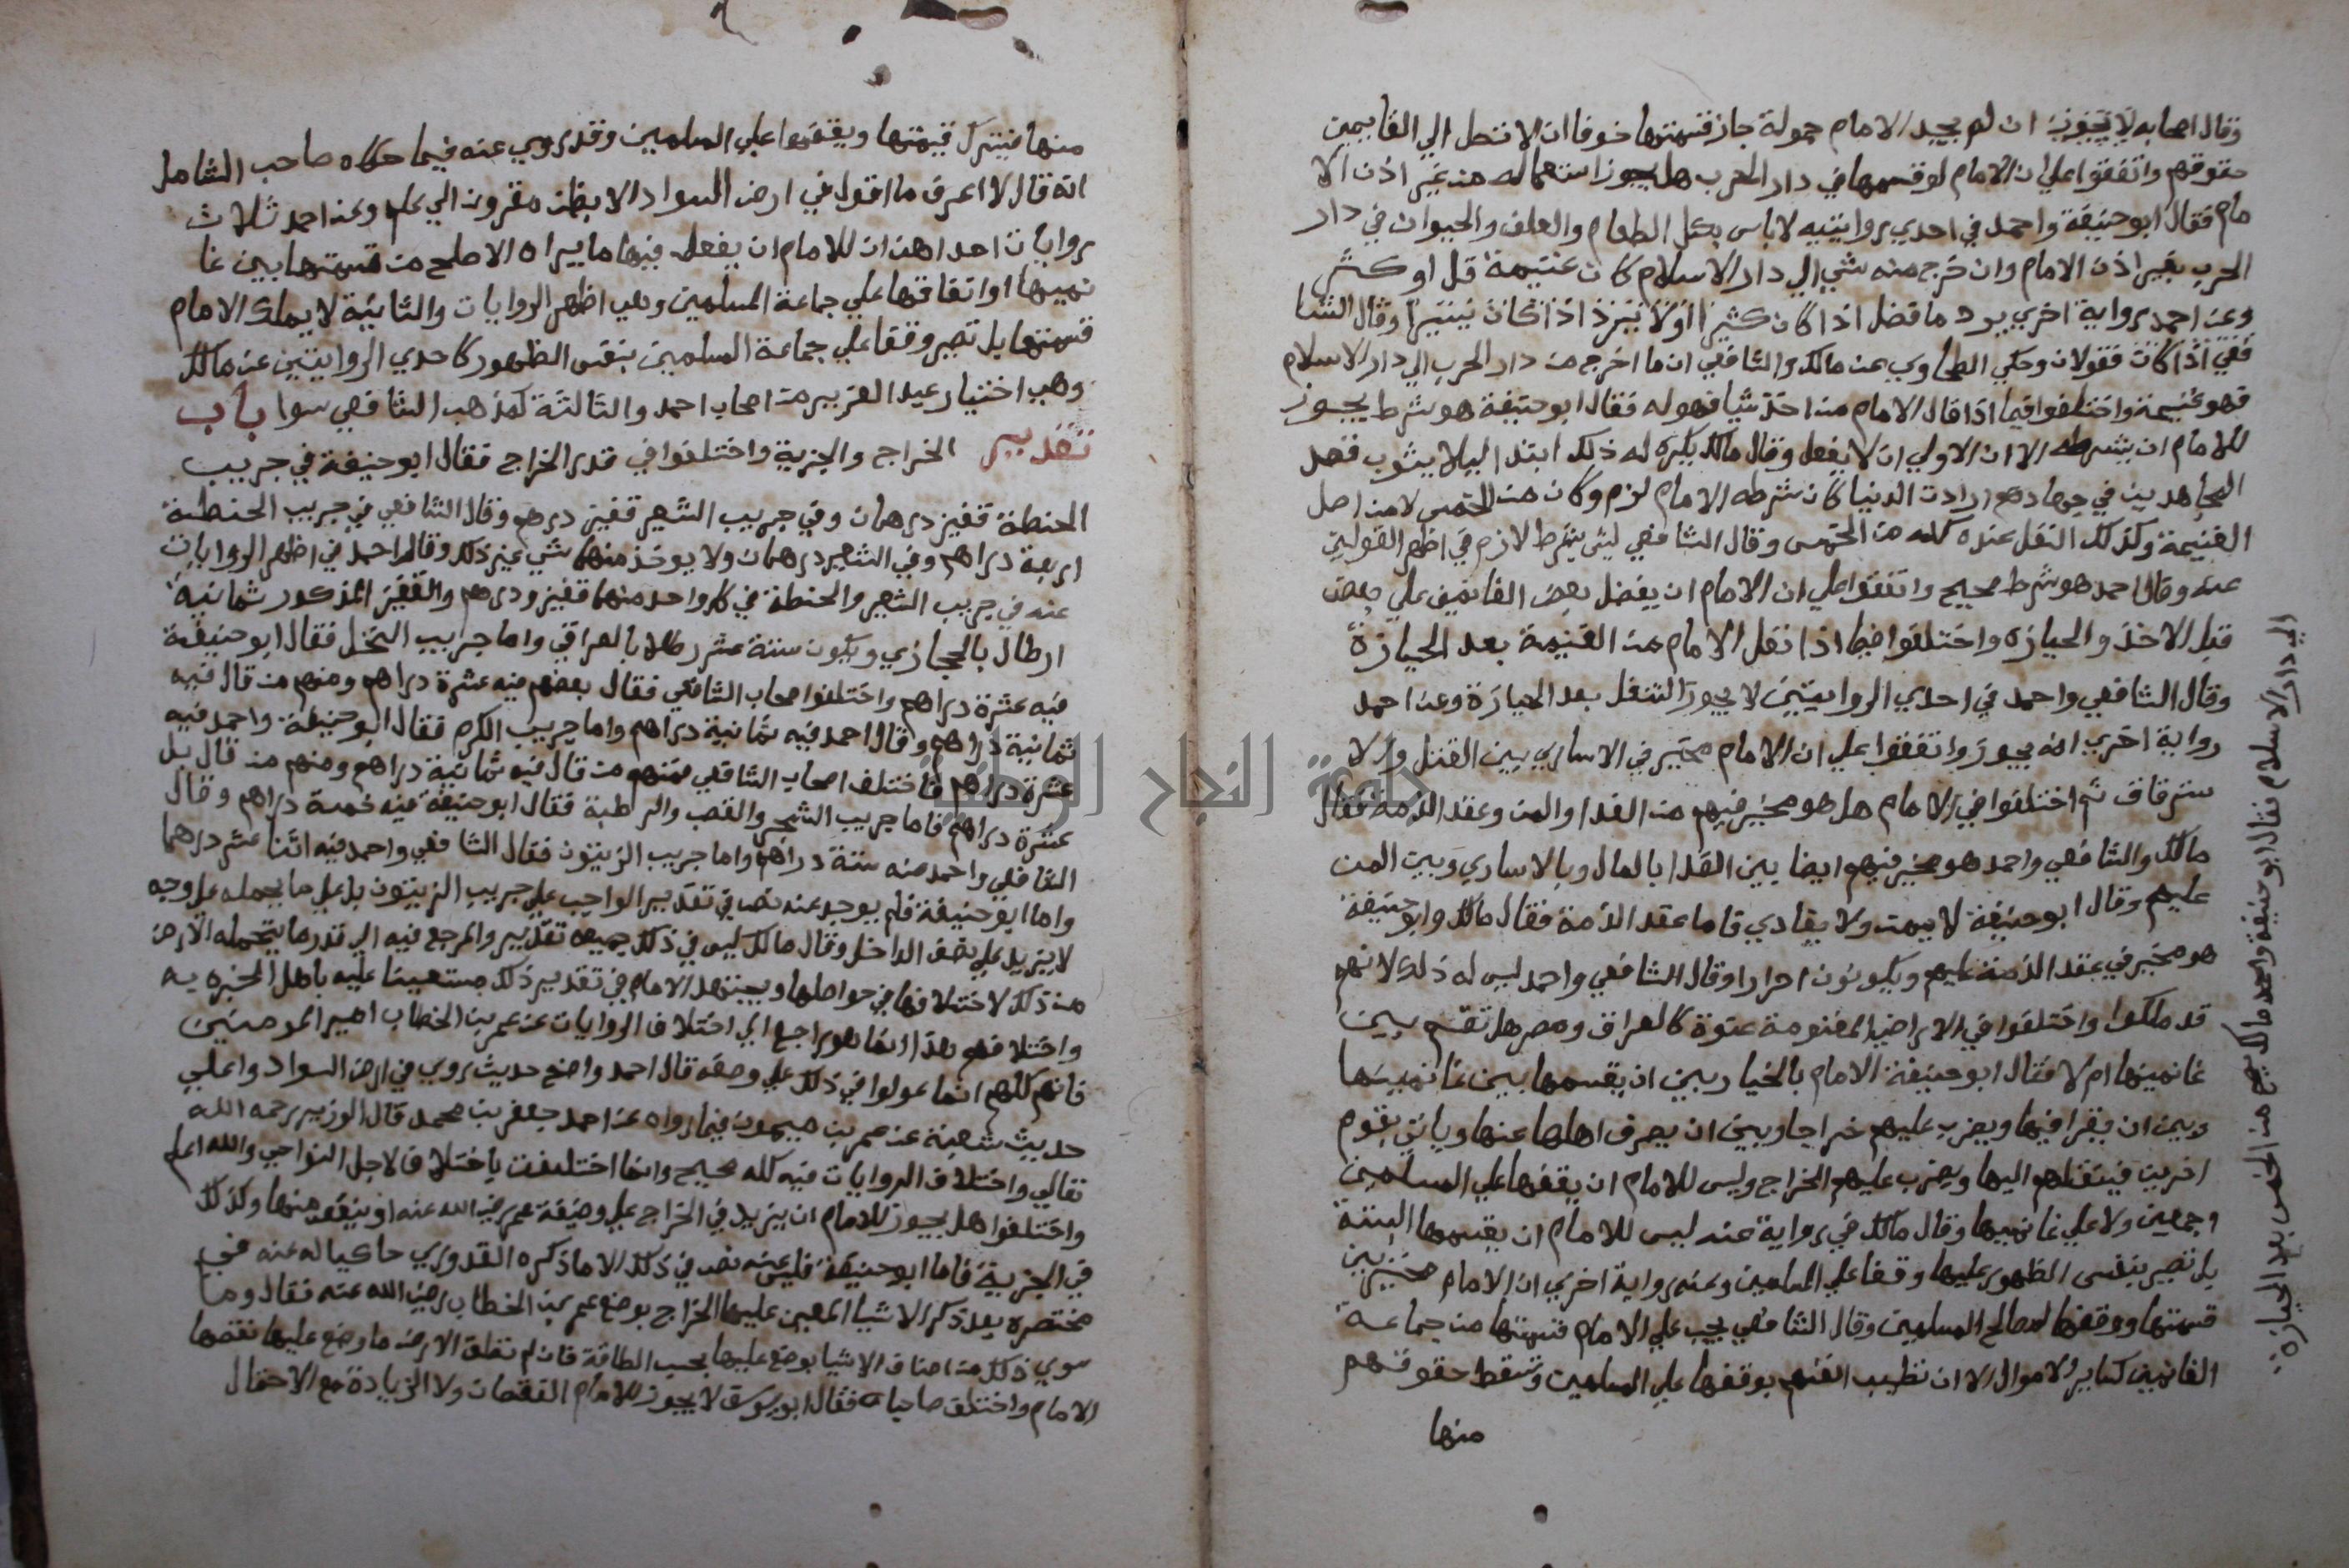 وقال اصحابه لا يجوز ان لم يجد الامام حمولة جاز قسمتها خوفا ان لا تصل الي الغانمين
حقوقهم واتفقوا علي ان الامام لو قسمها في دار الحرب هل يجوز استعماله من غير اذن الا
مام فقال ابو حنيفة واحمد في احدي روايتيه لا باس بكل الطعام والعلف والحيوان في دار
الحرب بغير اذن الامام وان خرج منه شي الي دار الاسلام كان غنيمة قل او كثر
وعن احمد رواية اخري يرد ما فضل اذا كان كثيرا اولا اذا كان يسيرا وقال الشا
فعي اذا كان فقولان وحكي الطحاوي عن مالك والشافعي ان ما اخرج من دار الحرب الي دار الاسلام
فهو غنيمة واختلفوا فيما اذا قال الامام من اخذ شيا فهو له فقال ابو حنيفة هو شرط يجوز
للامام ان يشرطه الا ان الاولي ان لا يفعل وقال مالك يكره له ذلك ابتدا ليلا يشوب قصد
المجاهدين في جهادهم ارادة الدنيا كان شرطه الامام لزم وكان من الخمس لا من اصل
الغنيمة وكذلك النفل عنده كله من الخمس وقال الشافعي ليس بشرط لازم في اظهر القولين
عنه وقال احمد هو شرط صحيح واتفقوا علي ان الامام ان يفضل بعض الغانمين علي بعض
قبل الاخذ والحيازه واختلفوا فيما اذا نفل الامام من الغنيمة بعد الحيازة
وقال الشافعي واحمد في احدي الروايتين لا يجوز التنفل بعد الحيازة وعن احمد
رواية اخري انه يجوز واتفقوا علي ان الامام مخير في الاساري بين القتل والا
سترقاق ثم اختلفوا في الامام هل هو مخير فيهم من الفدا والمن وعقد الذمة فقال
مالك والشافعي واحمد هو مخير فيهم ايضا بين الفدا بالمال وبالاساري وبين المن
عليهم وقال ابو حنيفة لا يمن ولا يفادي فاما عقد الذمة فقال مالك وابو حنيفة
هو مخير في عقد الذمة عليهم ويكونون احرارا وقال الشافعي واحمد ليس له ذلك لانهم
قد ملكوا واختلفوا في الاراضي المغنومة عنوة كالعراق ومصر هل تقسم بين
غانمينها ام لا فقال ابو حنيفة الامام بالخيار بين ان يقسمها بين غانمينها
وبين ان يقر اهلها فيها ويضرب عليهم خراجا وبين ان يصرف اهلها عنها وياتي بقوم
اخرين فينقلهم اليها ويضرب عليهم الخراج وليس للامام ان يقفها علي المسلمين
اجمعين ولا علي غانميها وقال مالك في رواية عنه ليس للامام ان يقسمها البتة
بل تصير بنفس الظهور عليها وقفا علي المسلمين وعنه رواية اخري ان الامام مخير بين
قسمتها ووقفها لمصالح المسلمين وقال الشافعي يجب علي الامام قسمتها من جماعة
الغانمين كساير الاموال الا ان تطيب انفسهم بوقفها علي المسلمين وتسقط حقوقهم
منها
الي دار الاسلام فقال ابو حنيفة واحمد مالك يصح من الخمس بعد الحيازة
منها فيترك قيمتها ويقفها علي المسلمين وقد روي عنه فيما حكاه صاحب الشامل
انه قال لا اعرف ما اقول في ارض السواد الا بظن مقرون الي علم وعن احمد ثلاث
روايات احداهن ان للامام ان يفعل فيها ما يراه الاصلح من قسمتها بين غا
نميها او ايقافها علي جماعة المسلمين وهي اظهر الروايات والثانية لا يملك الامام
قسمتها بل تصير وقفا علي جماعة المسلمين بنفس الظهور كاحدي الروايتين عن مالك
وهي اختيار عبد العزيز من اصحاب احمد والثالثة كمذهب الشافعي سوا باب
تقدير الخراج والجزية واختلفوا في قدر الخراج فقال ابو حنيفة في جريب
الحنطة قفيز درهمان وفي جريب الشعير قفيز درهم وقال الشافعي في جريب الحنطة
اربعة دراهم وفي الشعير درهمان ولا يوخذ منها شي غير ذلك وقال احمد في اظهر الروايات
عنه في جريب الشعير والحنطة في كل واحد منها قفيز ودرهم والقفيز المذكور ثمانية
ارطال بالحجازي ويكون ستة عشر رطلا بالعراقي واما جريب النخل فقال ابو حنيفة
فيه عشرة دراهم واختلفوا اصحاب الشافعي فقال بعضهم فيه عشرة دراهم ومنهم من قال فيه
ثمانية دراهم وقال احمد فيه ثمانية دراهم واما جريب الكرم فقال ابو حنيفة واحمد فيه
عشرة دراهم فاختلف اصحاب الشافعي فمنهم من قال فيه ثمانية دراهم ومنهم من قال بل
عشرة دراهم فاما جريب الشجر والقصب والرطبة فقال ابو حنيفة فيه خمسة دراهم وقال
الشافعي واحمد منه ستة دراهم واما جريب الزيتون فقال الشافعي واحمد فيه اثنا عشر درهما
واما ابو حنيفة فلم يوجد عنه نص في تقدير الواجب علي جريب الزيتون بل علي ما يحمله علي وجه
لا يزيد علي نصف الداخل وقال مالك ليس في ذلك جميعه تقدير والمرجع فيه الي قدر ما يتحمله الارض
من ذلك لاختلافها في حواصلها ويجتهد الامام في تقدير ذلك مستعينا عليه باهل الخبره يه
واختلافهم هذا انما هو راجع الي اختلاف الروايات عن عمر بن الخطاب امير المومنين
فانهم كلهم انما عولوا في ذلك علي وصفه قال احمد واضح حديث روي في ارض السواد واعلي
حديث شعبة عن عمر بن ميمون فيما رواه عن احمد جعفر بن محمد قال الوزير رحمه الله
تعالي واختلاف الروايات فيه كله صحيح وانما اختلفت باختلاف لاجل النواحي والله اعلم
واختلفوا هل يجوز للامام ان يزيد في الخراج علي وضيفة عمر رضي الله عنه او ينقص منها وكذلك
في الجزية فاما ابو حنيفة فليس عنه نص في ذلك الا ما ذكره القدوري حاكيا له عنه في
مختصره بعد ذكر الاشيا المعين عليها الخراج بوضع عمر بن الخطاب رضي الله عنه فقال وما
سوي ذلك من اصناف الاشيا يوضع عليها بحسب الطاقة فان لم تطق الارض ما وضع عليها نقصها
الامام واختلف صاحباه فقال ابو يوسف لا يجوز للامام النقصان ولا الزيادة مع الاحتمال
جامعة النجاح الوطنية